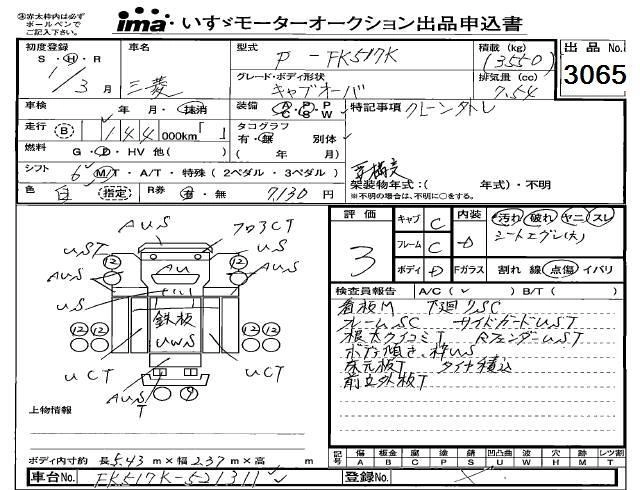 ㊟赤太枠内は必ず ボールペンで ご記入下さい。
ima いすゞモーターオークション出品申込書
初度登録 車名 型式 積載 (kg) 出品 No.
S・H・R P - FK517K (3550)
1/3月 三菱 グレード・ボディ形状 排気量 (cc) 3065
キャブオーバ 7.54
車検 年 月・抹消 装備 A・P・P C S W 特記事項 クレーンタトレ
走行 B 144 000km「 」 タコグラフ 有・無 別体
燃料 G・D・HV 他( ) ( 年 月)
シフト 6 M/T・A/T・特殊 (2ペダル・3ペダル) 架装物年式:( 年式)・不明
色 白 指定 R券 有・無 7130 円 ※不明の場合は、不明に○をする。
評価 キャブ C 内装 汚れ 破れ ヤニ スレ
3 フレーム C D シートエグレ(大)
ボディ D Fガラス 割れ 線 点傷 イバリ
検査員報告 A/C(✓) B/T( )
看板M 下廻りSC
フレームSC サイドガードUST
根太クイコミT RフェンダーUST
ボデー傾き、枠US
床元板T タイヤ積込
前立外板T
AUS フロアCT
UST US
12 AU 12
AUS AUS
US
鉄板
12 12 UWS 12 12
UCT UCT
AUS
T 9
上物情報
ボディ内寸約 長 5.43 m×幅 2.37 m×高 m
記号 傷 A 板金 B 腐 C 塗 P 錆 S 凹凸曲 U 波 W 穴 H 跡 M レツ割 T
車台No. FK517K-521311 登録No.